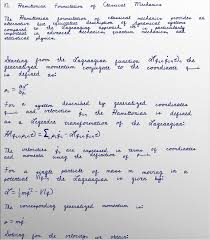 n. Hamiltonian Formulation of Classical Mechanics
The Hamiltonian formulation of classical mechanics provides an
alternative and equivalent description of dynamical systems
compared to the Lagrangian approach. It is particularly
important in advanced mechanics, quantum mechanics, and
statistical physics.
Starting from the Lagrangian function L(qᵢ, q̇ᵢ, t), the
generalized momentum conjugate to the coordinate
is defined as:
For a system described by generalized coordinates
and velocities, the Hamiltonian is defined
as the Legendre transformation of the Lagrangian:
H(qᵢ, pᵢ, t) = Σ pᵢ q̇ᵢ - L(qᵢ, q̇ᵢ, t)
The velocities q̇ᵢ are expressed in terms of coordinates
and momenta using the definition of
For a single particle of mass m moving in a
potential the Lagrangian is given by:
The corresponding generalized momentum is:
Solving for the velocity we obtain: